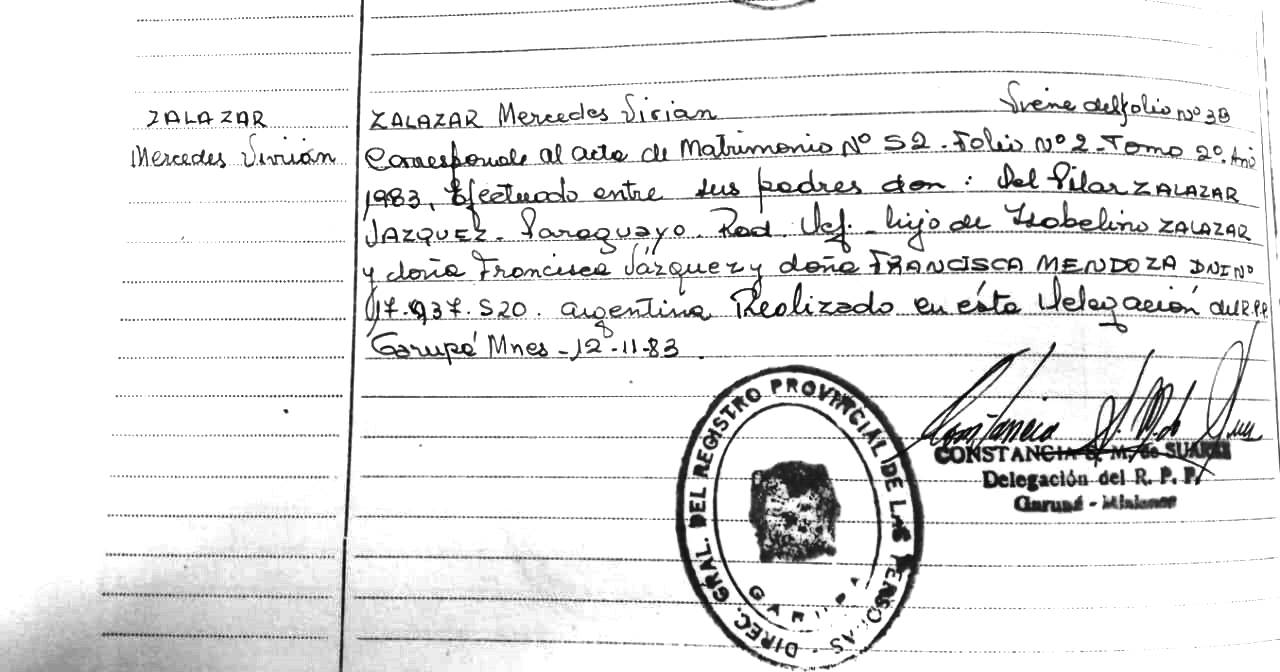 ZALAZAR
Mercedes Vivián
ZALAZAR Mercedes Vivian Viene del folio Nº 38
Corresponde al acta de Matrimonio Nº 52 - Folio Nº 2 - Tomo 2º. Año
1983, Efectuado entre sus padres don: Del Pilar ZALAZAR
VAZQUEZ - Paraguayo - Rad. Def. - hijo de Isabelino ZALAZAR
y doña Francisca Vázquez y doña FRANCISCA MENDOZA DNI Nº
17.937.520. argentina Realizado en ésta Delegación del R.P.P.
Garupá Mnes - 12-11-83.
DIREC. GRAL. DEL REGISTRO PROVINCIAL DE LAS PERSONAS -
GARUPA
CONSTANCIA S. M. de SUAREZ
Delegación del R. P. P.
Garupá - Misiones